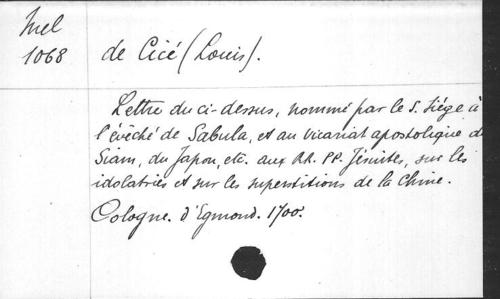 Mel
1068
de Cicé (Louis).
Lettre du ci-dessus, nommé par le S. Siége à
l'évêché de Sabula, et au vicariat apostolique de
Siam, du Japon, etc. aux RR. PP. Jésuites, sur les
idolatries et sur les superstitions de la Chine.
Cologne. d'Egmond. 1700.